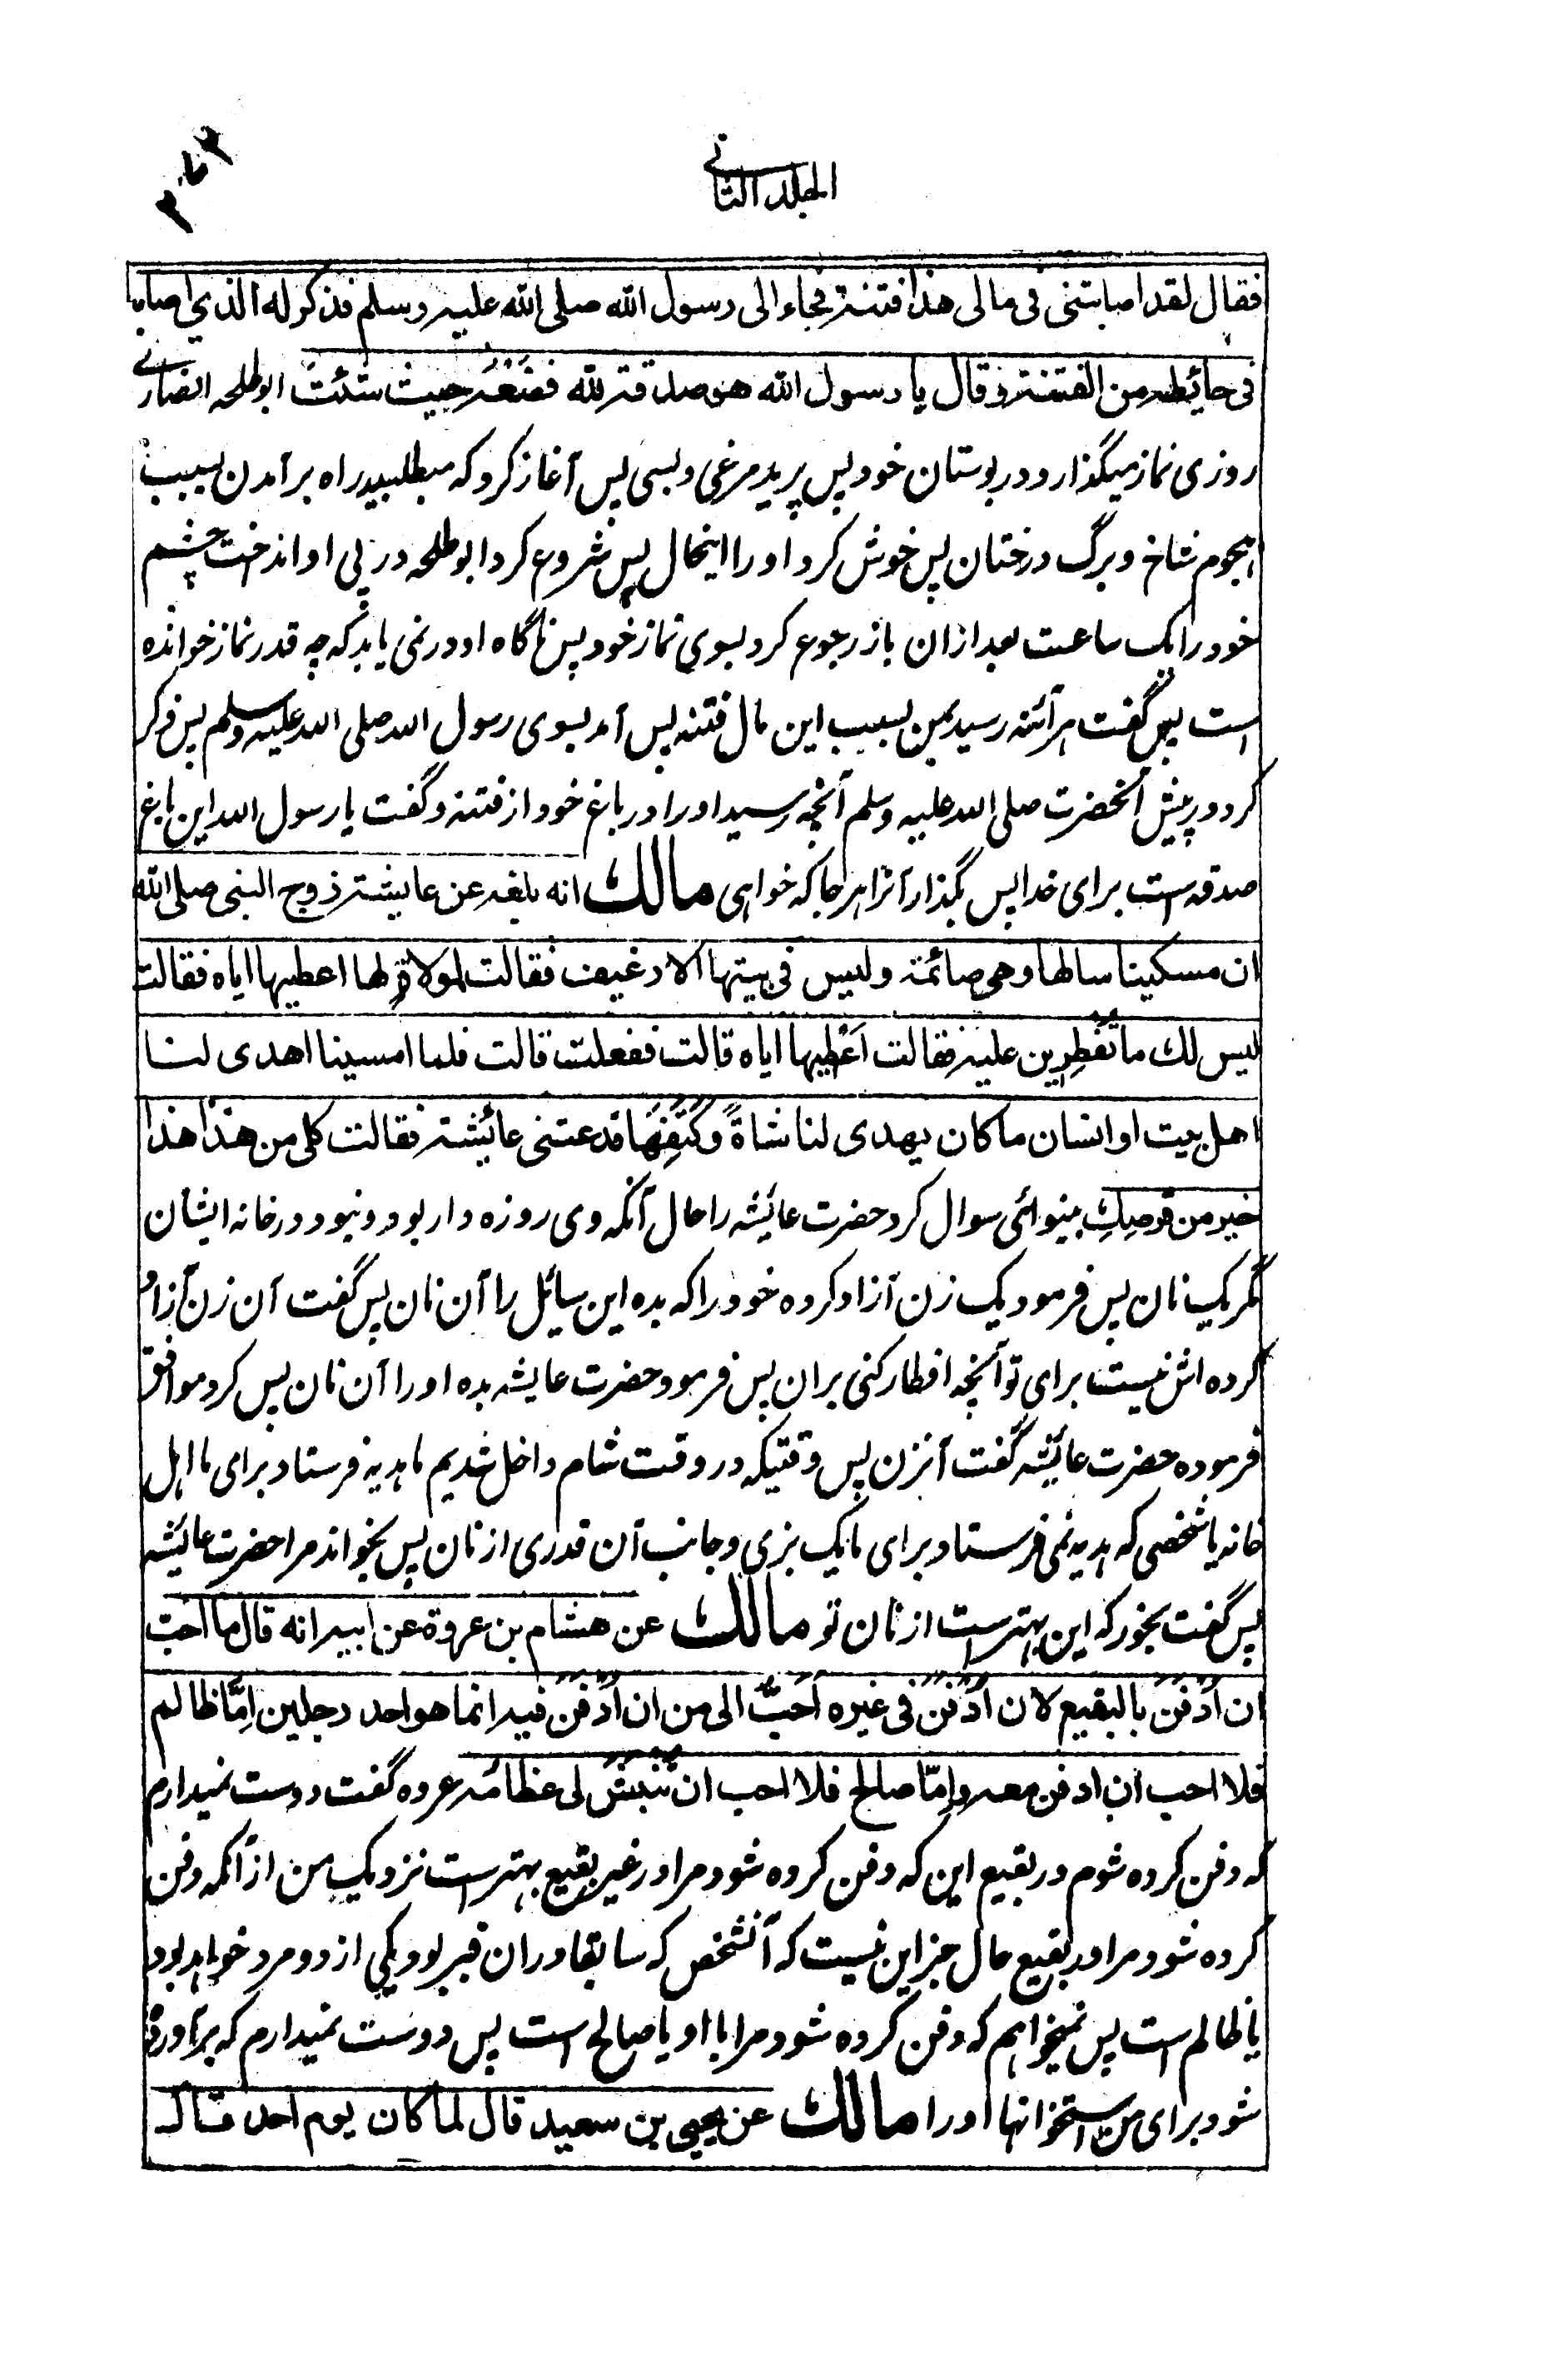 الجلد الثانے
فقال لقد اصابتنی فی مالی هذا فتنة فجاء الی رسول الله صلی الله علیه وسلم فذکر له الذی اصابه
فی حائطه من الفتنة وقال یا رسول الله هو صدقة لله فضَعْهُ حیث شئتَ ابو طلحه انصارے
روزی نماز میگذارد در بوستان خود پس پرید مرغی دبسی پس آغاز کرد که میطلبید راه برآمدن بسبب
هجوم شاخ و برگ درختان پس خوش کرد او را اینحال پس شروع کرد ابو طلحه در پی او انداخت چشم
خود را یک ساعت بعد ازان باز رجوع کرد بسوی نماز خود پس ناگاه او در نمی یابد که چه قدر نماز خوانده
است پس گفت هر آئنه رسید بمن بسبب این مال فتنه پس آمد بسوی رسول الله صلی الله علیه وسلم پس ذکر
کرد در پیش آنحضرت صلی الله علیه وسلم آنچه رسید او را در باغ خود از فتنه و گفت یا رسول الله این باغ
صدقه است برای خدا پس بگذار آنرا هر جا که خواهی مالك انه بلغه عن عایشة زوج النبی صلی الله
ان مسکینا سالها وهی صائمة ولیس فی بیتها الا رغیف فقالت لمولاة لها اعطیها ایاه فقالت
لیس لك ما تُفْطِرِین علیه فقالت اَعْطِیها ایاه قالت ففعلت قالت فلما امسینا اهدی لنا
اهل بیت او انسان ما کان یهدی لنا شاةً وکَفَنَهَا فدعتنی عائشة فقالت کلی من هذا هذا
خیر من قرصِكِ بینوائی سوال کرد حضرت عائشه را حال آنکه وی روزه دار بود و نبود در خانه ایشان
مگر یک نان پس فرمود یک زن آزاد کرده خود را که بده این سایل را آن نان پس گفت آن زن آزاد
کرده اش نیست برای تو آنچه افطار کنی بران پس فرمود حضرت عایشه بده او را آن نان پس کرد موافق
فرموده حضرت عائشه گفت آنزن پس وقتیکه در وقت شام داخل شدیم ما هدیه فرستاد برای ما اهل
خانه یا شخصی که هدیه نمی فرستاد برای ما یک بزی و جانب آن قدری از نان پس بخواند مرا حضرت عائشه
پس گفت بخور که این بهتر است از نان تو مالك عن هشام بن عروة عن ابیه انه قال ما احب
ان اُدْفَنَ بالبقیع لان اُدْفَنَ فی غیره اَحَبُّ الی من ان اُدْفَنَ فیه انما هو احد رجلین اِمَّا ظالم
فلا احب ان ادفن معه واِمّا صالح فلا احب ان تُنْبَشَ لی عظامُه عروه گفت دوست نمیدارم
که دفن کرده شوم در بقیع این که دفن کرده شود مرا در غیر بقیع بهتر است نزدیک من از آنکه دفن
کرده شود مرا در بقیع حال جز این نیست که آنشخص که سابقا در ان قبر بود یکی از دو مرد خواهد بود
یا ظالم است پس نمیخواهم که دفن کرده شود مرا با او یا صالح است پس دوست نمیدارم که برآورده
شود برای من استخوانها او را مالك عن یحیی بن سعید قال لما کان یوم احد قال